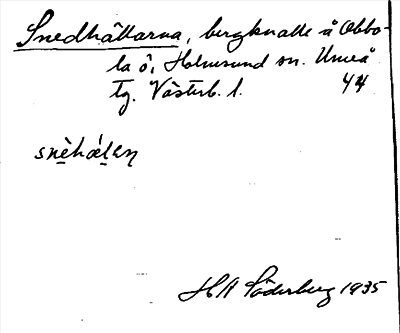 Snedhällarna, bergknalle å Obbo-
la ö, Holmsund sn. Umeå
tg. Västerb. l. 44
snèhǽlen̥
H A Söderberg 1935